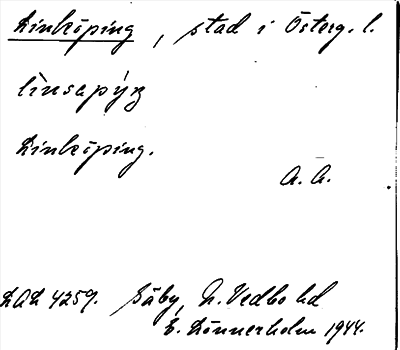 Linköping, stad i Österg. l.
lìnsapýŋ
Linköping.
A. A.
LAL 4259. Säby, N. Vedbo hd
E. Lönnerholm 1944.